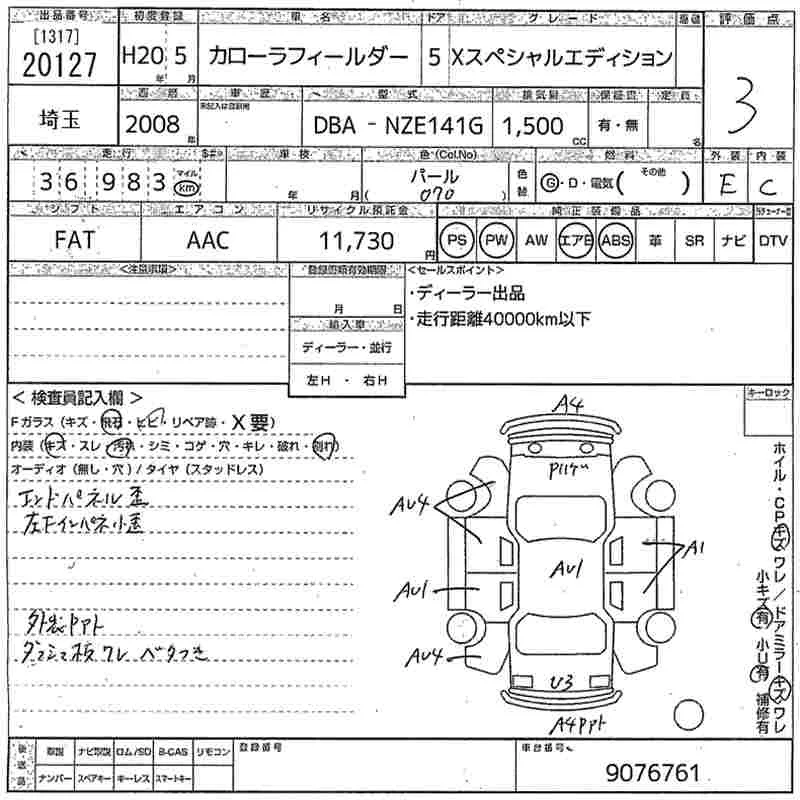 出品番号 初度登録 車名 ドア グレード 評価点
[1317]
20127 H20年 5月 カローラフィールダー 5 Xスペシャルエディション 3
西暦 車歴 型式 排気量 保証書 定員
埼玉 2008年 DBA - NZE141G 1,500cc 有・無 名
走行 車検 色(Col.No) 燃料 外装 内装
36983 マイル km 年 月 パール ( 070 ) 色替 G・D・電気( その他 ) E C
シフト エアコン リサイクル預託金 純正装備品
FAT AAC 11,730円 PS PW AW エアB ABS 革 SR ナビ DTV
<注意事項> 登録書類有効期限 <セールスポイント>
月 日 ・ディーラー出品
輸入車 ・走行距離40000km以下
ディーラー・並行
左H ・ 右H
< 検査員記入欄 > キーロック
Fガラス(キズ・飛石・ヒビ・リペア跡・X要)
内装(キズ・スレ・汚れ・シミ・コゲ・穴・キレ・破れ・割れ)
オーディオ(無し・穴)/タイヤ(スタッドレス)
エンドパネル歪
左Fインパネ小歪
外装PPト
ダッシュ板ワレ ベタつき
A4
AU4
AU1
AU4
AU1
A1
U3
A4PPト
ホイル・CPキズワレ/ドアミラーキズワレ
小キズ有 小U有 補修有
後送品 取説 ナビ取説 ロム/SD B-CAS リモコン 登録番号 車台番号
ナンバー スペアキー キーレス スマートキー 9076761